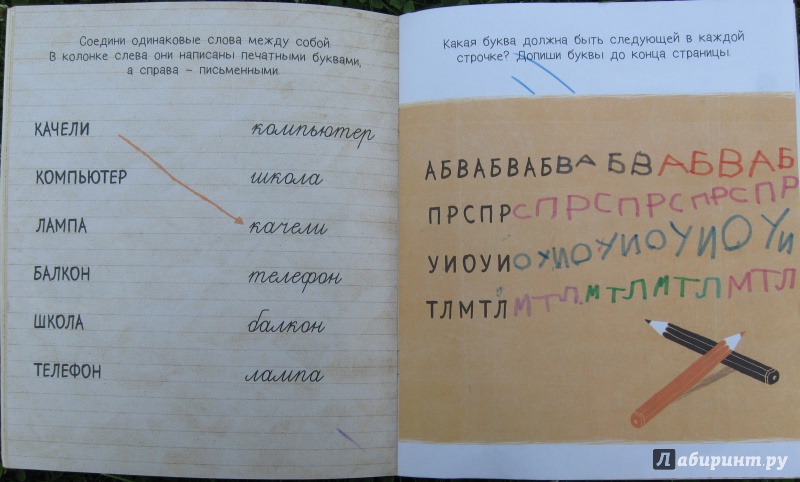 Соедини одинаковые слова между собой.
В колонке слева они написаны печатными буквами,
а справа – письменными.
КАЧЕЛИ компьютер
КОМПЬЮТЕР школа
ЛАМПА качели
БАЛКОН телефон
ШКОЛА балкон
ТЕЛЕФОН лампа
Какая буква должна быть следующей в каждой
строчке? Допиши буквы до конца страницы.
АБВАБВАБВАБВАБВАБ
ПРСПРСПРСПРСПРСПР
УИОУИОУИОУИОУИОУИ
ТЛМТЛМТЛМТЛМТЛМТЛ
Лабиринт.ру